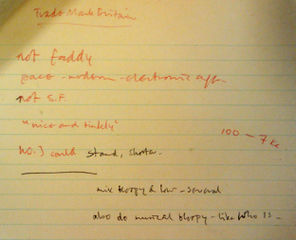 Trade Mark Britain
not faddy
pace - modern - electronic age.
not S.F.
"nice and tinkly"
100 - 7 kc
No. 3 could stand, shorter.
mix bloopy & low - several
also do musical bloopy - like Who is -